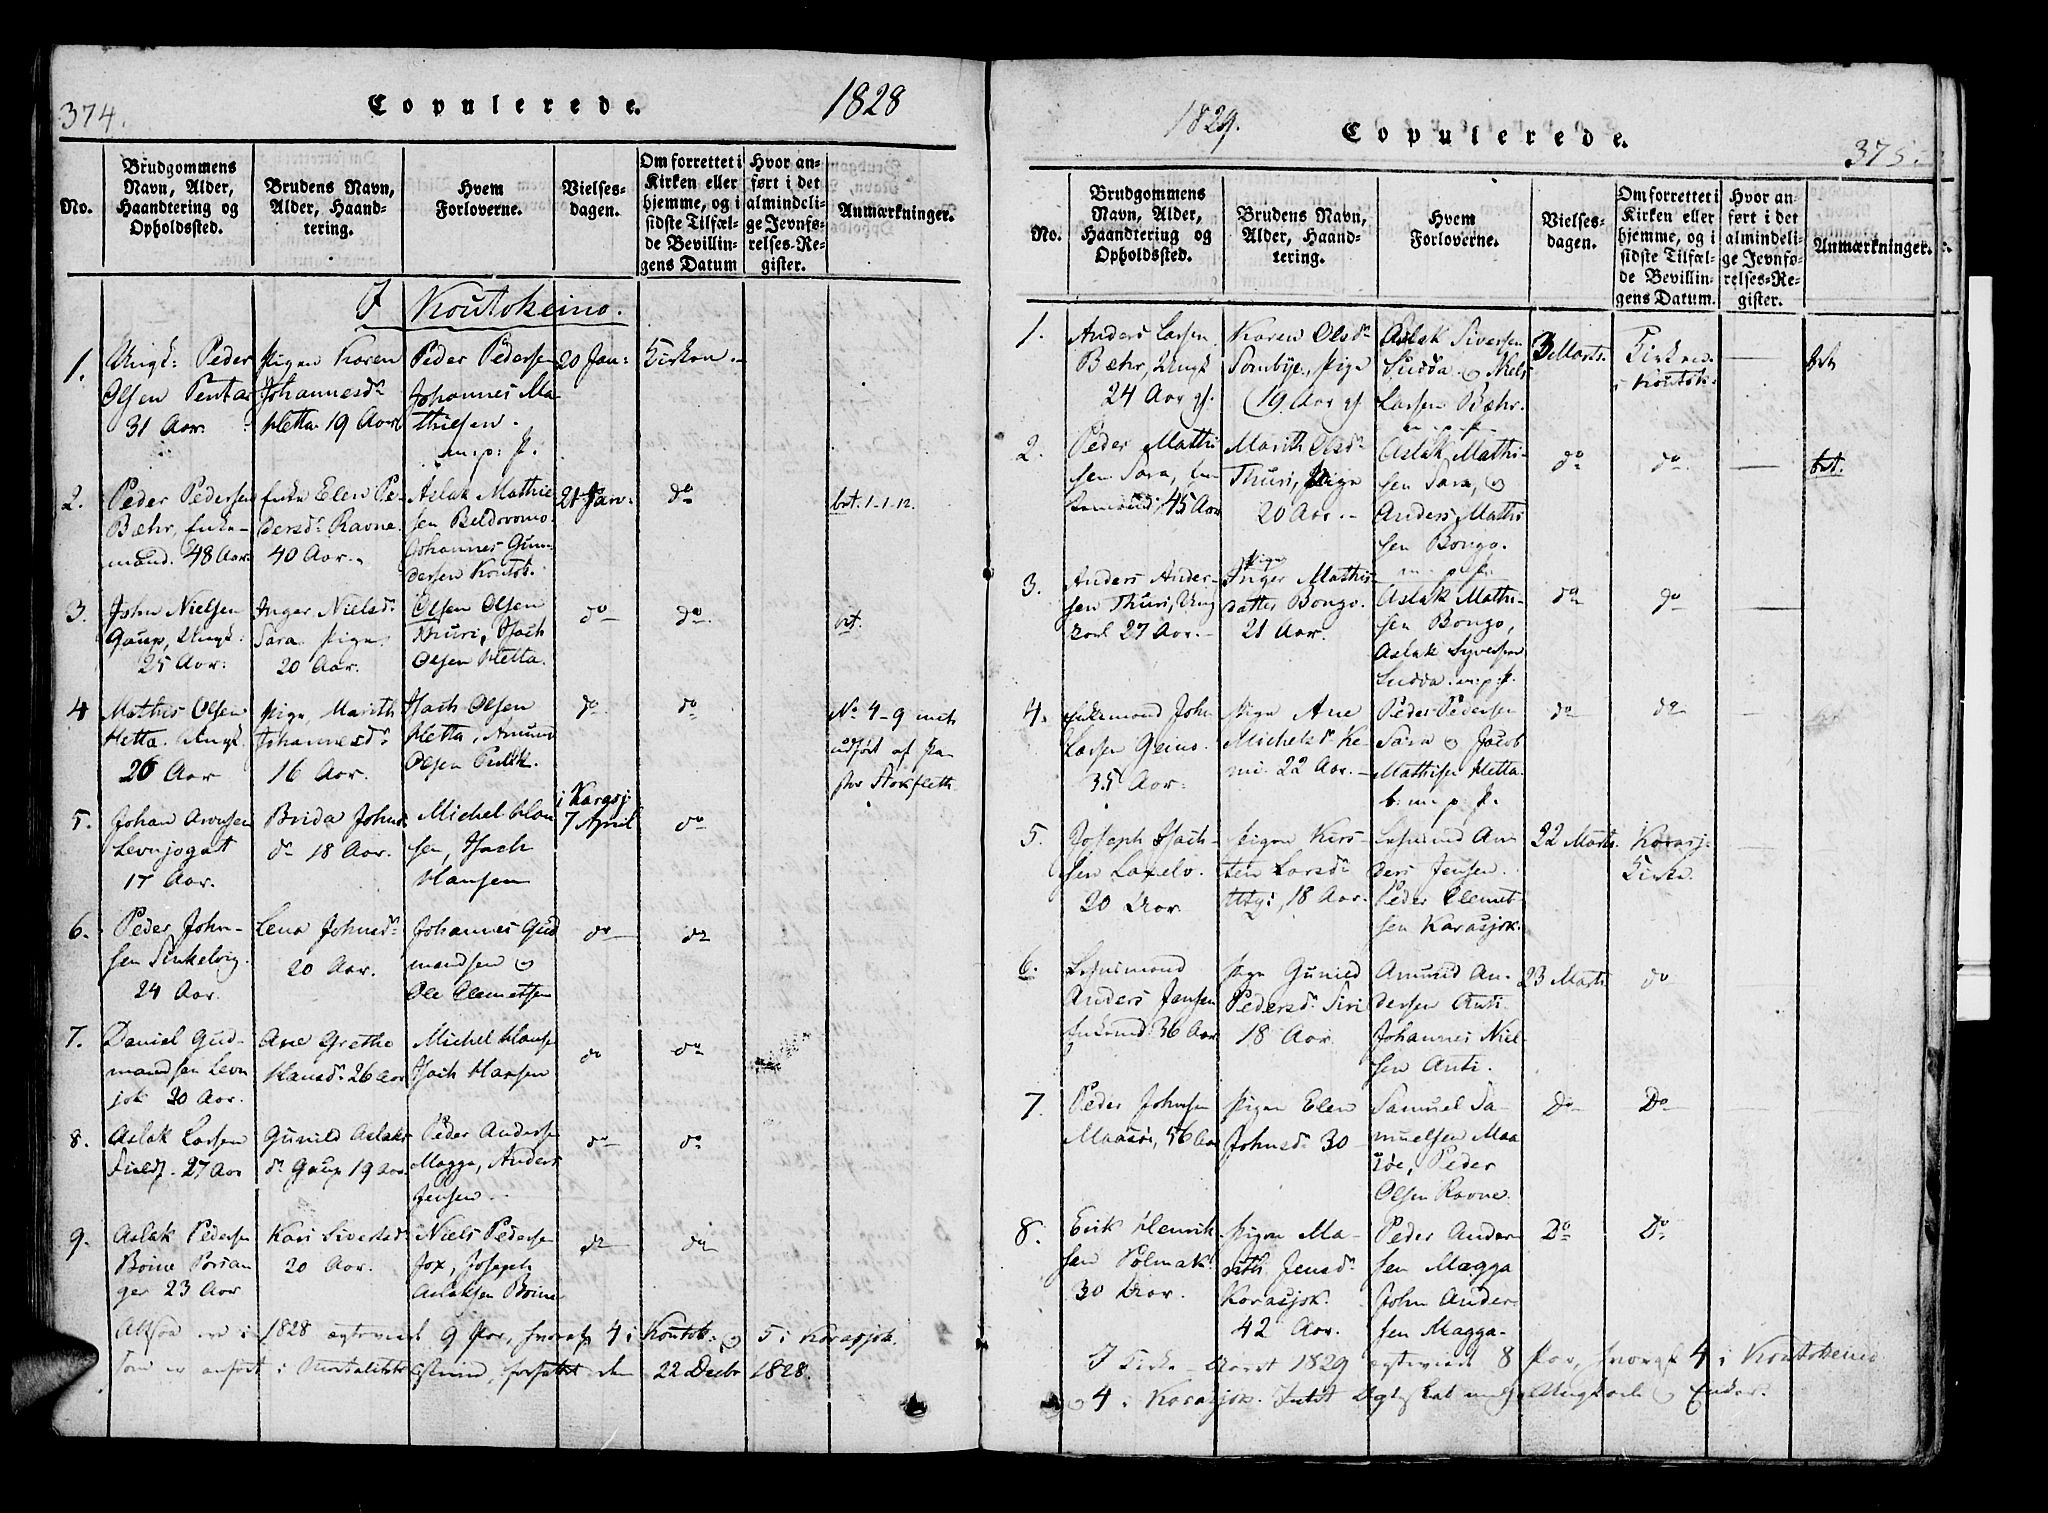 374.
Copulerede.
1828
No.
Brudgommens
Navn, Alder,
Haandtering og
Opholdssted.
Brudens Navn,
Alder, Haand-
tering.
Hvem
Forloverne.
Vielses-
dagen.
Om forrettet i
Kirken eller
hjemme, og i
sidste Tilfæl-
de Bevillin-
gens Datum
Hvor an-
ført i det
almindeli-
ge Jevnfø-
relses-Re-
gister.
Anmærkninger.
I Koutokeino.
1.
Ungk: Peder
Olsen Pentas
31 Aar.
Pigen Karen
Johannesdr
Hetta 19 Aar
Peder Pedersen
Johannes Ma-
thisen.
m: p: f:
20 Jan:
Kirken
2.
Peder Pedersen
Bæhr, Enke-
mand. 48 Aar
Enke Elen Pe-
dersdr Ravne.
40 Aar.
Aslak Mathi-
sen Beldovomo
Johannes Gun-
dersen Koutok.
21 Jan:
do
3.
John Nielsen
Gaup, Ungk:
25 Aar:
Inger Nielsdr
Sara Pige
20 Aar.
Olsen Olsen
Thuri, Isach
Olsen Hetta.
do
do
4
Mathis Olsen
Hetta. Ungk.
26 Aar
Pige, Marith
Johannesdr
16 Aar.
Isach Olsen
Hetta, Amund
Olsen
do
do
No 4-9 inct
udført af Pa-
stor Stokfleth
5.
Johan Arensen
Levnjogat
17 Aar.
Brida Johns
dr 18 Aar.
Michel Han
sen, Isach
Hansen
i Karasj:
7 April
do
6.
Peder John-
sen
24 Aar.
Lena Johnsdr
20 Aar.
Johannes Gud
mandsen og
Ole Clemetsen
do
do
7.
Daniel Gud-
mandsen Levn
jok 20 Aar.
Ane Grethe
Hansdr 26 Aar
Michel Hans
Isach Hansen
do
do
8.
Aslak Larsen
27 Aar
Gunild Aslaks
dr Gaup 19 Aar.
Peder Anderse
Magga, Anders
Jensen.
do
do
9.
Aslak Pedersen
Boine Porsan
ger 23 Aar
Kari Siversdr
20 Aar.
Niels Pedersen
Jox, Joseph
Aslaksen Boine
do
do
Altsaa ere i 1828 egteviede 9 Par, hvoraf 4 i Koutok: og 5 i Karasjok.
som er anført i 22 Decbr 1828.
1829.
Copulerede.
375.
No.
Brudgommens
Navn, Alder,
Haandtering og
Opholdssted.
Brudens Navn,
Alder, Haand-
tering.
Hvem
Forloverne.
Vielses-
dagen.
Om forrettet i
Kirken eller
hjemme, og i
sidste Tilfæl-
de Bevillin-
gens Datum.
Hvor an-
ført i det
almindeli-
ge Jevnfø-
relses-Re-
gister.
Anmærkninger.
1.
Anders Larsen
Bæhr, Ungk
24 Aar gl.
Karen Olsdr
Sombye, Pige
19 Aar gl.
Aslak Siversen
Sudda. og Niels
Larsen Bæhr.
m. p. f.
3 Marts.
Kirken
i Koutok:
2.
Peder Mathi
sen Sara, En
kemand: 45 Aar
Marith Olsdr
Thuri, Pige
20 Aar.
Aslak Mathi-
sen Sara, og
Anders Mathi
sen Bongo.
m. p. f.
do
do
3.
Anders Ander-
sen Thuri, Ung
karl 27 Aar.
Pige
Inger Mathis
datter Bongo.
21 Aar.
Aslak Mathi-
sen Bongo,
Aslak Syversen
Sudda. m: p: f.
do
do
4.
Enkemand John
Larsen Geino.
35 Aar.
Pige Ane
Michelsdr Ke-
mi 22 Aar.
Peder Pedersen
Sara og Jacob
Mathisen Hetta
b: m: p: f.
do
do
5.
Joseph Isach-
sen Laxelv.
20 Aar.
Pigen Kirs-
ten Larsdr
Utzi, 18 Aar.
Anders Jensen.
Peder Clemet
sen Karasjok.
22 Marts.
Karasj:
Kirke.
6.
Anders Jensen
Enkemd: 36 Aar
Pige Gunild
Pedersdr Siri
18 Aar.
Amund An-
dersen Anti
Johannes Niel-
sen Anti.
23 Marts
do
7.
Peder Johnsen
Maasöe, 56 Aar
Pigen Elen
Johnsdr 30
Samuel Sa-
muelsen Maa
söe, Peder
Olsen Ravne.
Do
Do
8.
Erik Henrik
sen Polmak
30 Aar.
Pigen Ma-
rith Jensdr
Karasjok.
42 Aar.
Peder Ander
sen Magga
John Ander
sen Magga
Do
Do
I Kirke-Aaret 1829 egteviede 8 Par, hvoraf 4 i Koutokeino
og 4 i Karasjok.